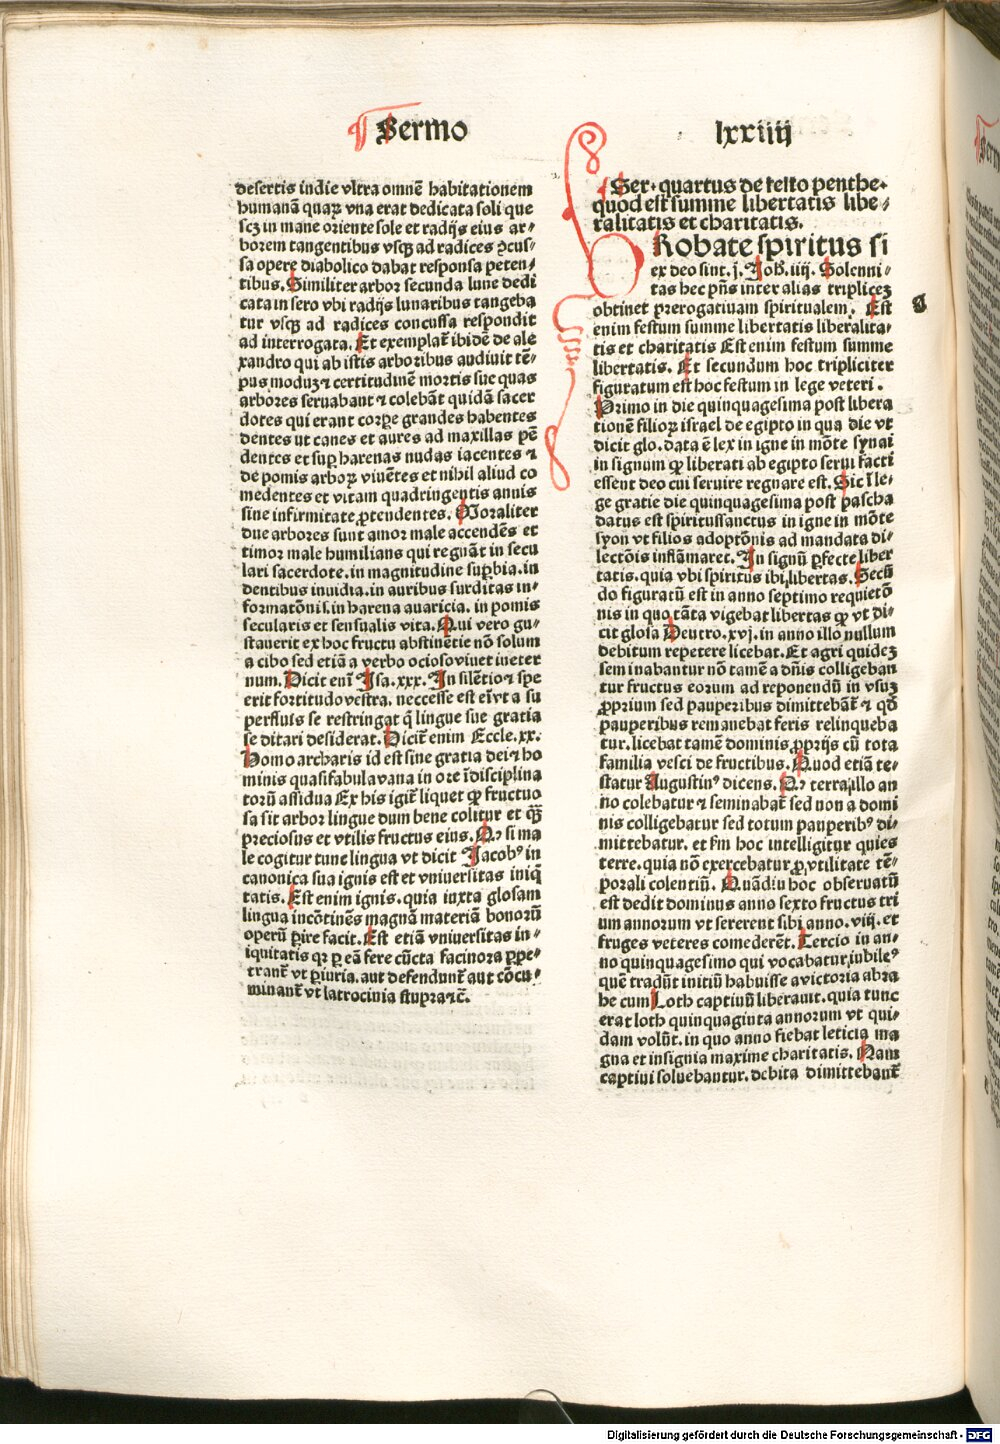 Sermo
lxxiiij
desertis indie vltra omnē habitationem
humanā quaꝝ vna erat dedicata soli que
scꝫ in mane oriente sole et radijs eius ar⸗
borem tangentibus vsqꝫ ad radices ꝯcus⸗
sa opere diabolico dabat responsa peten⸗
tibus. Similiter arbor secunda lune dedi
cata in sero vbi radijs lunaribus tangeba
tur vsqꝫ ad radices concussa respondit
ad interrogata. Et exemplaꝶ ibidē de ale
xandro qui ab istis arboribus audiuit tē⸗
pus moduꝫ ⁊ certitudinē mortis sue quas
arbores seruabant ⁊ colebāt quidā sacer
dotes qui erant corꝑe grandes habentes
dentes ut canes et aures ad maxillas pē
dentes et suꝑ harenas nudas iacentes ⁊
de pomis arboꝝ viuētes et nihil aliud co
medentes et vitam quadringentis annis
sine infirmitate ꝓtendentes. Moraliter
due arbores sunt amor male accendēs et
timor male humilians qui regnāt in secu
lari sacerdote. in magnitudine suꝑbia. in
dentibus inuidia. in auribus surditas in⸗
formatōni s. in harena auaricia. in pomis
secularis et sensualis vita. Qui vero gu⸗
stauerit ex hoc fructu abstinētie nō solum
a cibo sed etiā a verbo ocioso viuet in eter
num. Dicit eni̅ Isa. xxx. In silētio ⁊ spe
erit fortitudo vestra. neccesse est ei̅ vt a su
perfluis se restringat q̄ lingue sue gratia
se ditari desiderat. Dicit̄ enim Eccle. xx.
Homo acharis id est sine gratia dei ⁊ ho
minis quasi fabula vana in ore i̅disciplina
torū assidua Ex his igit̄ liquet ꝙ fructuo
sa sit arbor lingue dum bene colitur et q̄ꝫ
preciosus et vtilis fructus eius. Qꝛ si ma
le cogitur tunc lingua vt dicit Jacobꝰ in
canonica sua ignis est et vniuersitas iniq̄
tatis. Est enim ignis. quia iuxta glosam
lingua incōtinēs magnā materiā bonorū
operū ꝑire facit. Est etiā vniuersitas in⸗
iquitatis qꝛ ꝑ eā fere cūcta facinora ꝑpe⸗
trant̄ vt ꝑiuria. aut defendunt̄ aut cōcu⸗
minant̄ vt latrocinia stupra ⁊c̄.
Ser. quartus de festo penthe⸗
quod est summe libertatis libe⸗
ralitatis et charitatis.
Robate spiritus si
ex deo sint. j. Joh̄. iiij. Solenni⸗
tas hec pn̄s inter alias tripliceꝫ
obtinet prerogatiuam spiritualem. Est
enim festum summe libertatis liberalita⸗
tis et charitatis Est enim festum summe
libertatis. Et secundum hoc tripliciter
figuratum est hoc festum in lege veteri.
Primo in die quinquagesima post libera
tionē filioꝝ israel de egipto in qua die vt
dicit glo. data ē lex in igne in mōte synai
in signum ꝙ liberati ab egipto serui facti
essent deo cui seruire regnare est. Sic i̅ le⸗
ge gratie die quinquagesima post pascha
datus est spiritussanctus in igne in mōte
syon vt filios adoptōnis ad mandata di⸗
lectōis inflāmaret. In signū ꝑfecte liber
tatis. quia vbi spiritus ibi libertas. Secū
do figuratū est in anno septimo requietō
nis in quo tāta vigebat libertas ꝙ vt di⸗
cit glosa Deutro. xvj. in anno illo nullum
debitum repetere licebat. Et agri quideꝫ
seminabantur nō tamē a dn̄is colligeban
tur fructus eorum ad reponendū in vsuꝫ
ꝓprium sed pauperibus dimittebāt̄ ⁊ qd̄
pauperibus remanebat feris relinqueba
tur. licebat tamē dominis ꝓprijs cū tota
familia vesci de fructibus. Quod etiā te⸗
statur Augustinꝰ dicens. Qꝛ terra illo an
no colebatur ⁊ seminabat̄ sed non a domi
nis colligebatur sed totum pauperibꝰ di⸗
mittebatur. et s̄m hoc intelligitur quies
terre. quia nō exercebatur ꝓ vtilitate tē⸗
porali colentiū. Quādiu hoc obseruatū
est dedit dominus anno sexto fructus tri
um annorum vt sererent sibi anno. viij. et
fruges veteres comederēt. Tercio in an⸗
no quinquagesimo qui vocabatur iubileꝰ
quē tradūt initiū habuisse a victoria abra
he cum Loth captiuū liberauit. quia tunc
erat loth quinquaginta annorum vt qui⸗
dam volūt. in quo anno fiebat leticia ma
gna et insignia maxime charitatis. Nam
captiui soluebantur. debita dimittebant̄
Digitalisierung gefördert durch die Deutsche Forschungsgemeinschaft - DFG